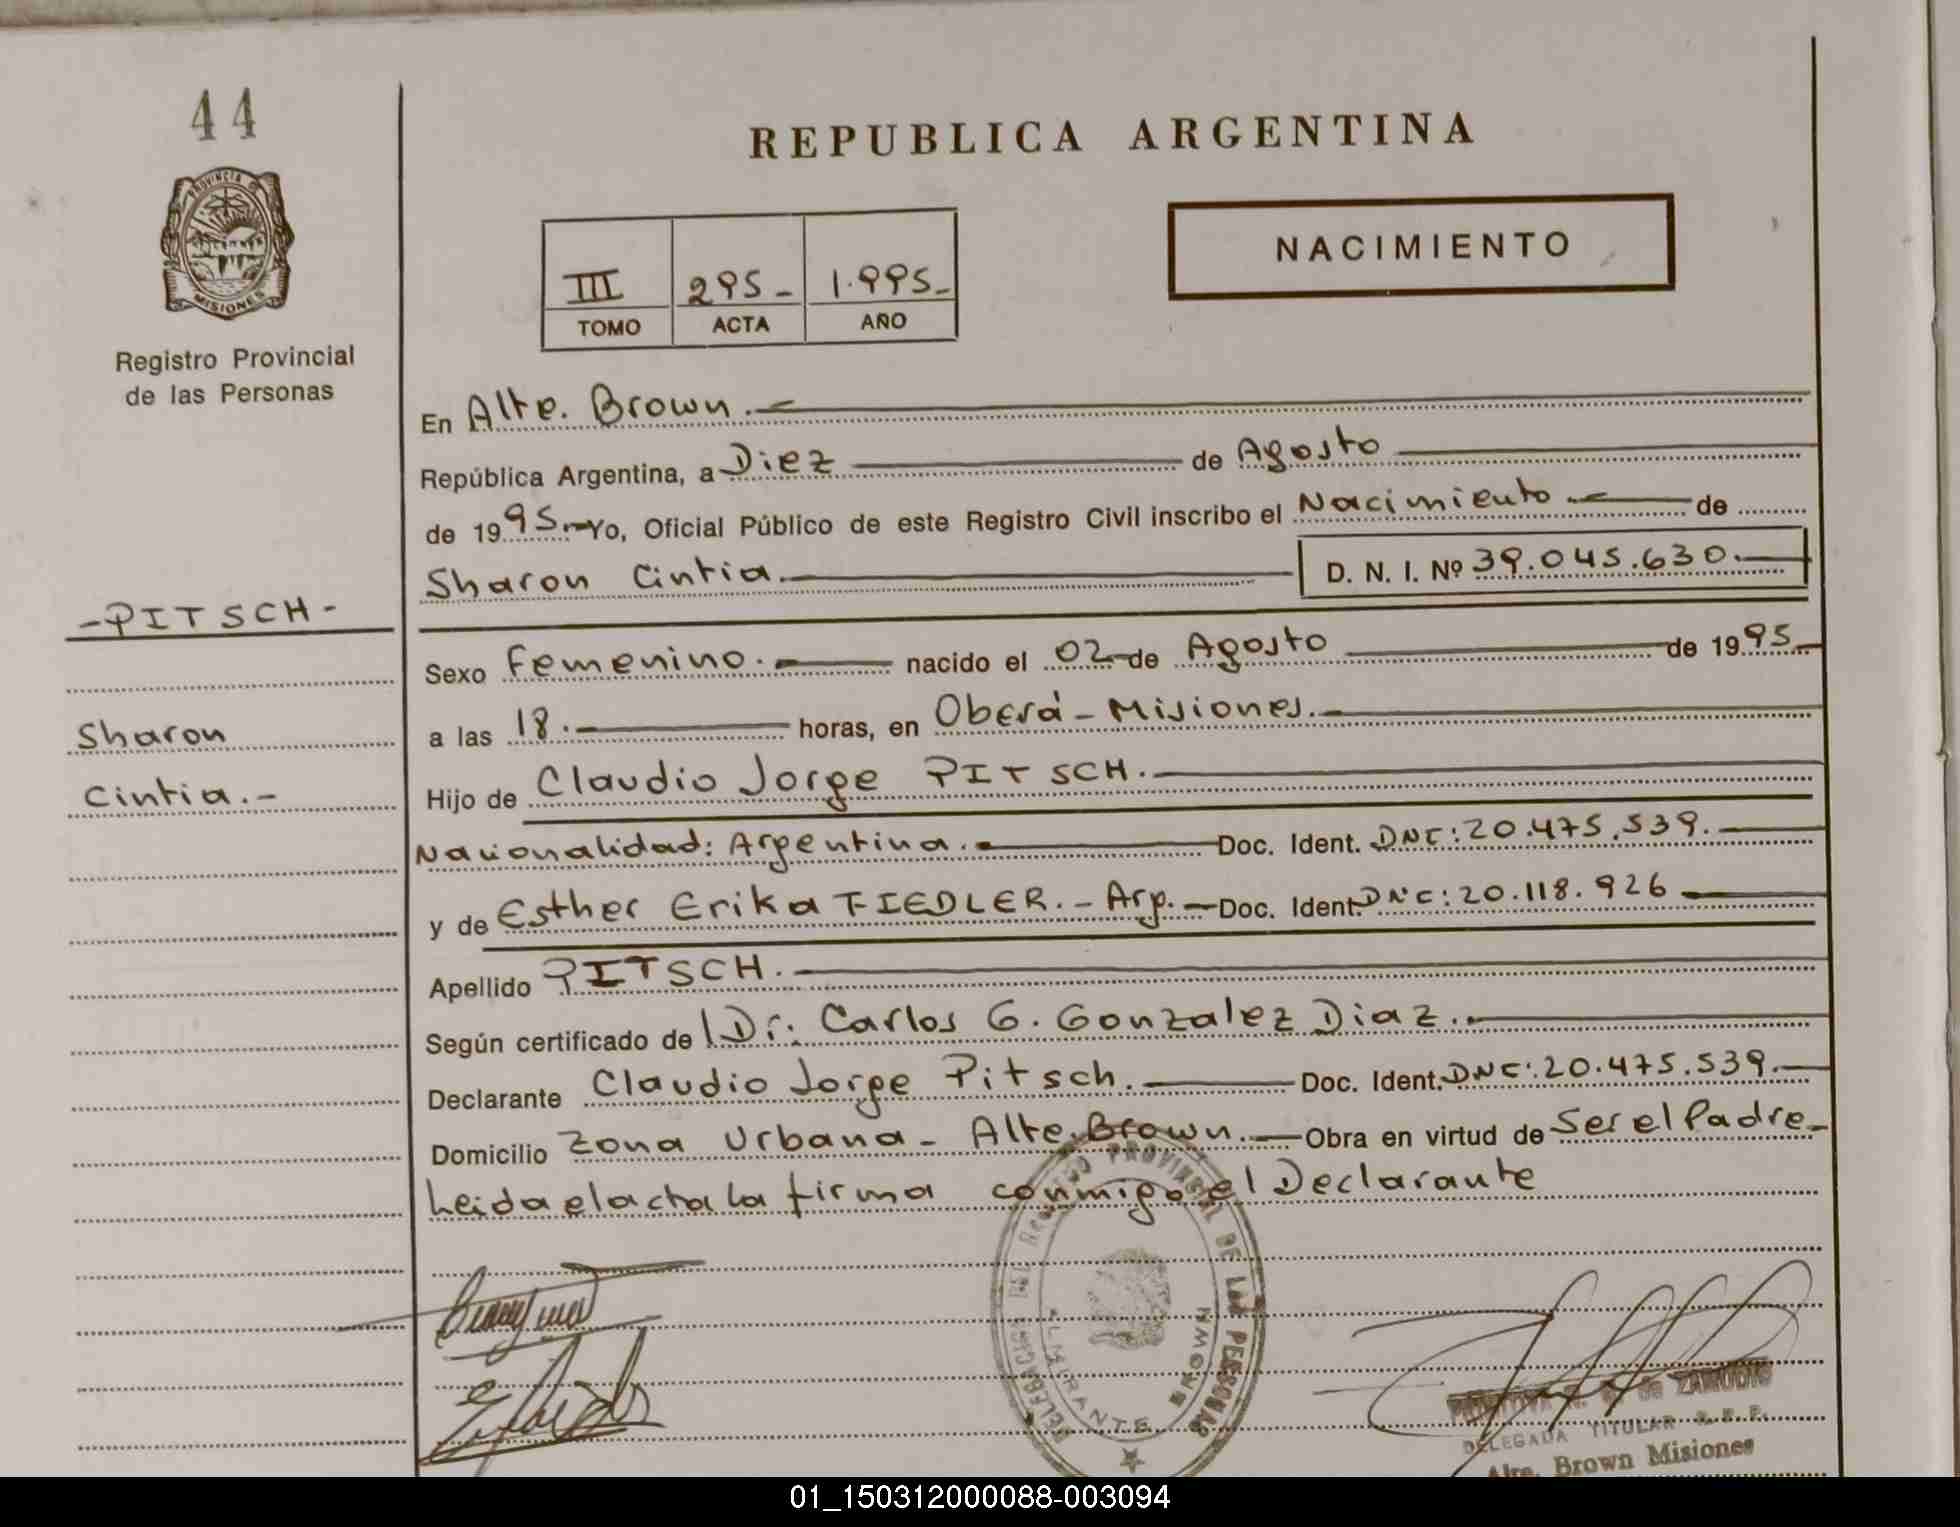 44
REPUBLICA ARGENTINA
PROVINCIA DE
MISIONES
Registro Provincial
de las Personas
III 295- 1.995-
TOMO ACTA AÑO
NACIMIENTO
En Alte. Brown.
República Argentina, a Diez de Agosto
de 1995.- Yo, Oficial Público de este Registro Civil inscribo el Nacimiento.- de
Sharon Cintia. D. N. I. Nº 39.045.630.
-PITSCH-
Sharon
Cintia.-
Sexo Femenino. nacido el 02 de Agosto de 1995.
a las 18. horas, en Oberá - Misiones.
Hijo de Claudio Jorge PITSCH.
Nacionalidad: Argentina. Doc. Ident. DNI: 20.475.539.
y de Esther Erika FIEDLER. - Arg. Doc. Ident. DNI: 20.118.926
Apellido PITSCH.
Según certificado de Dr. Carlos G. Gonzalez Diaz.
Declarante Claudio Jorge Pitsch. Doc. Ident. DNI: 20.475.539.
Domicilio Zona Urbana - Alte. Brown. Obra en virtud de Ser el Padre-
Leida el acta la firma conmigo el Declarante
DELEGACION DEL REGISTRO PROVINCIAL DE LAS PERSONAS
ALMIRANTE BROWN
N. de ZAMUDIO
DELEGADA TITULAR R. P. P.
Alte. Brown Misiones
01_150312000088-003094